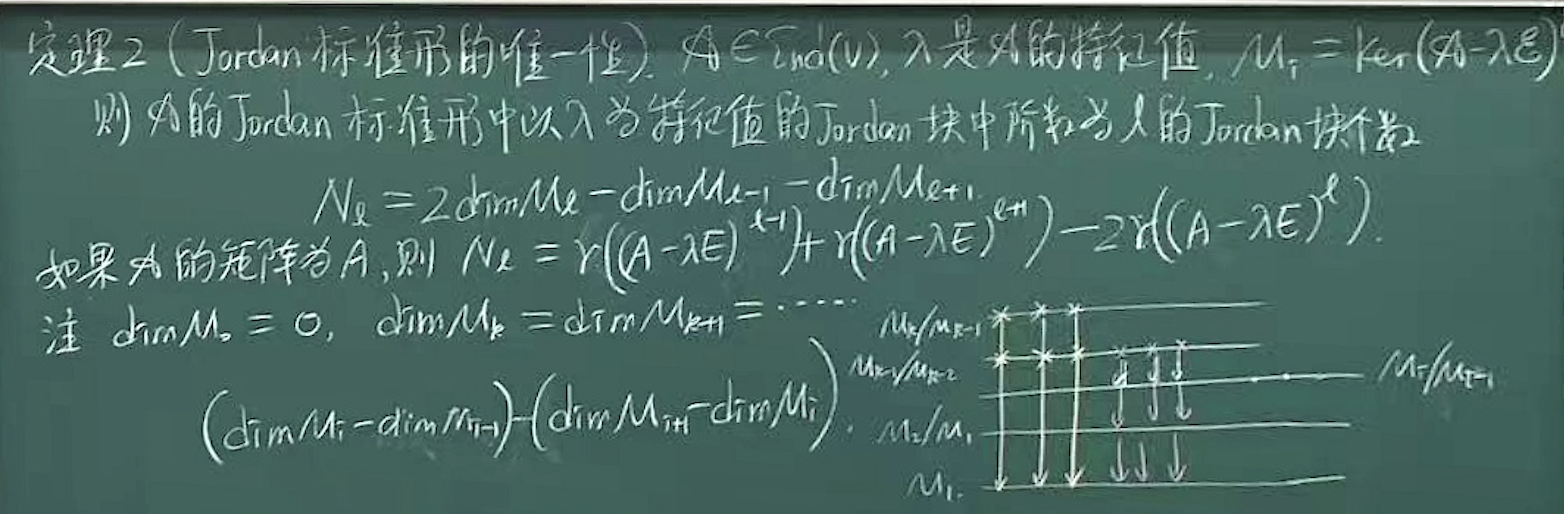 定理2 (Jordan 标准形的唯一性). 𝒜∈End(V), λ是𝒜的特征值, Mᵢ = Ker(𝒜-λℰ)
则 𝒜的Jordan 标准形中以λ为特征值的Jordan 块中阶数为 l 的Jordan块个数
Nₗ = 2dimMₗ - dimMₗ₋₁ - dimMₗ₊₁.
如果𝒜的矩阵为A, 则 Nₗ = r((A-λE)ˡ⁻¹) + r((A-λE)ˡ⁺¹) - 2r((A-λE)ˡ).
注 dimM₀ = 0, dimMₖ = dimMₖ₊₁ = ······
(dimMᵢ - dimMᵢ₋₁) - (dimMᵢ₊₁ - dimMᵢ).
Mₖ/Mₖ₋₁
Mₖ₋₁/Mₖ₋₂
Mᵢ/Mᵢ₋₁
M₂/M₁
M₁.